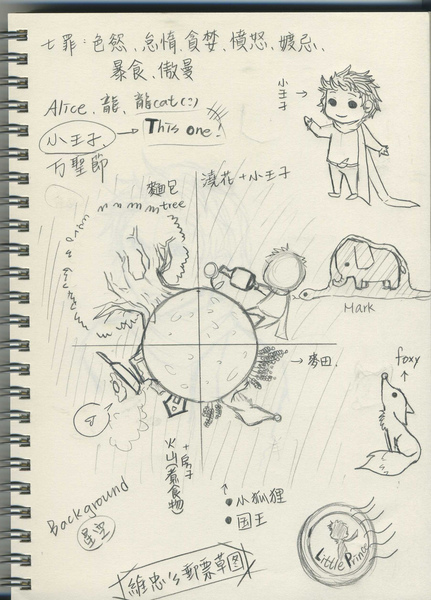 七罪：色慾、怠惰、貪婪、憤怒、嫉忌、
暴食、傲曼
小王子
Alice、龍、龍cat(:)
小王子、 → This one!
万聖節
麵包
tree
澆花+小王子
Mark
→麥田.
foxy
+房子
火山(煮食物)
小狐狸
国王
Background
星空
Little Prince
維忠's郵票草图